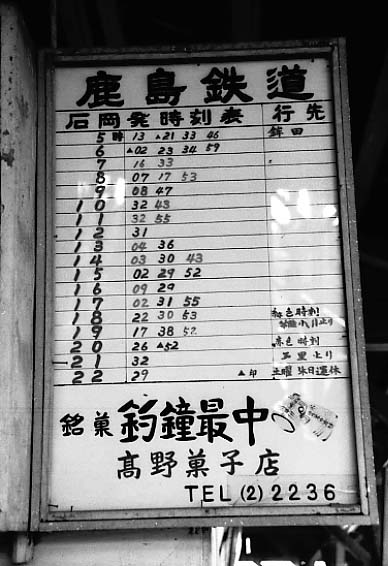 鹿島鉄道
石岡発時刻表 行先
5時 13 ▲21 33 46 鉾田
6 ▲02 23 34 59
7 16 33
8 07 17 53
9 08 47
10 32 43
11 32 55
12 31
13 04 36
14 03 30 43
15 02 29 52
16 09 29
17 02 31 55
18 22 30 53 色時刻
19 17 38 52 止り
20 26 ▲52 赤色時刻
21 32 玉里止り
22 29 ▲印 土曜休日運休
銘菓 釣鐘最中
髙野菓子店
TEL(2)2236